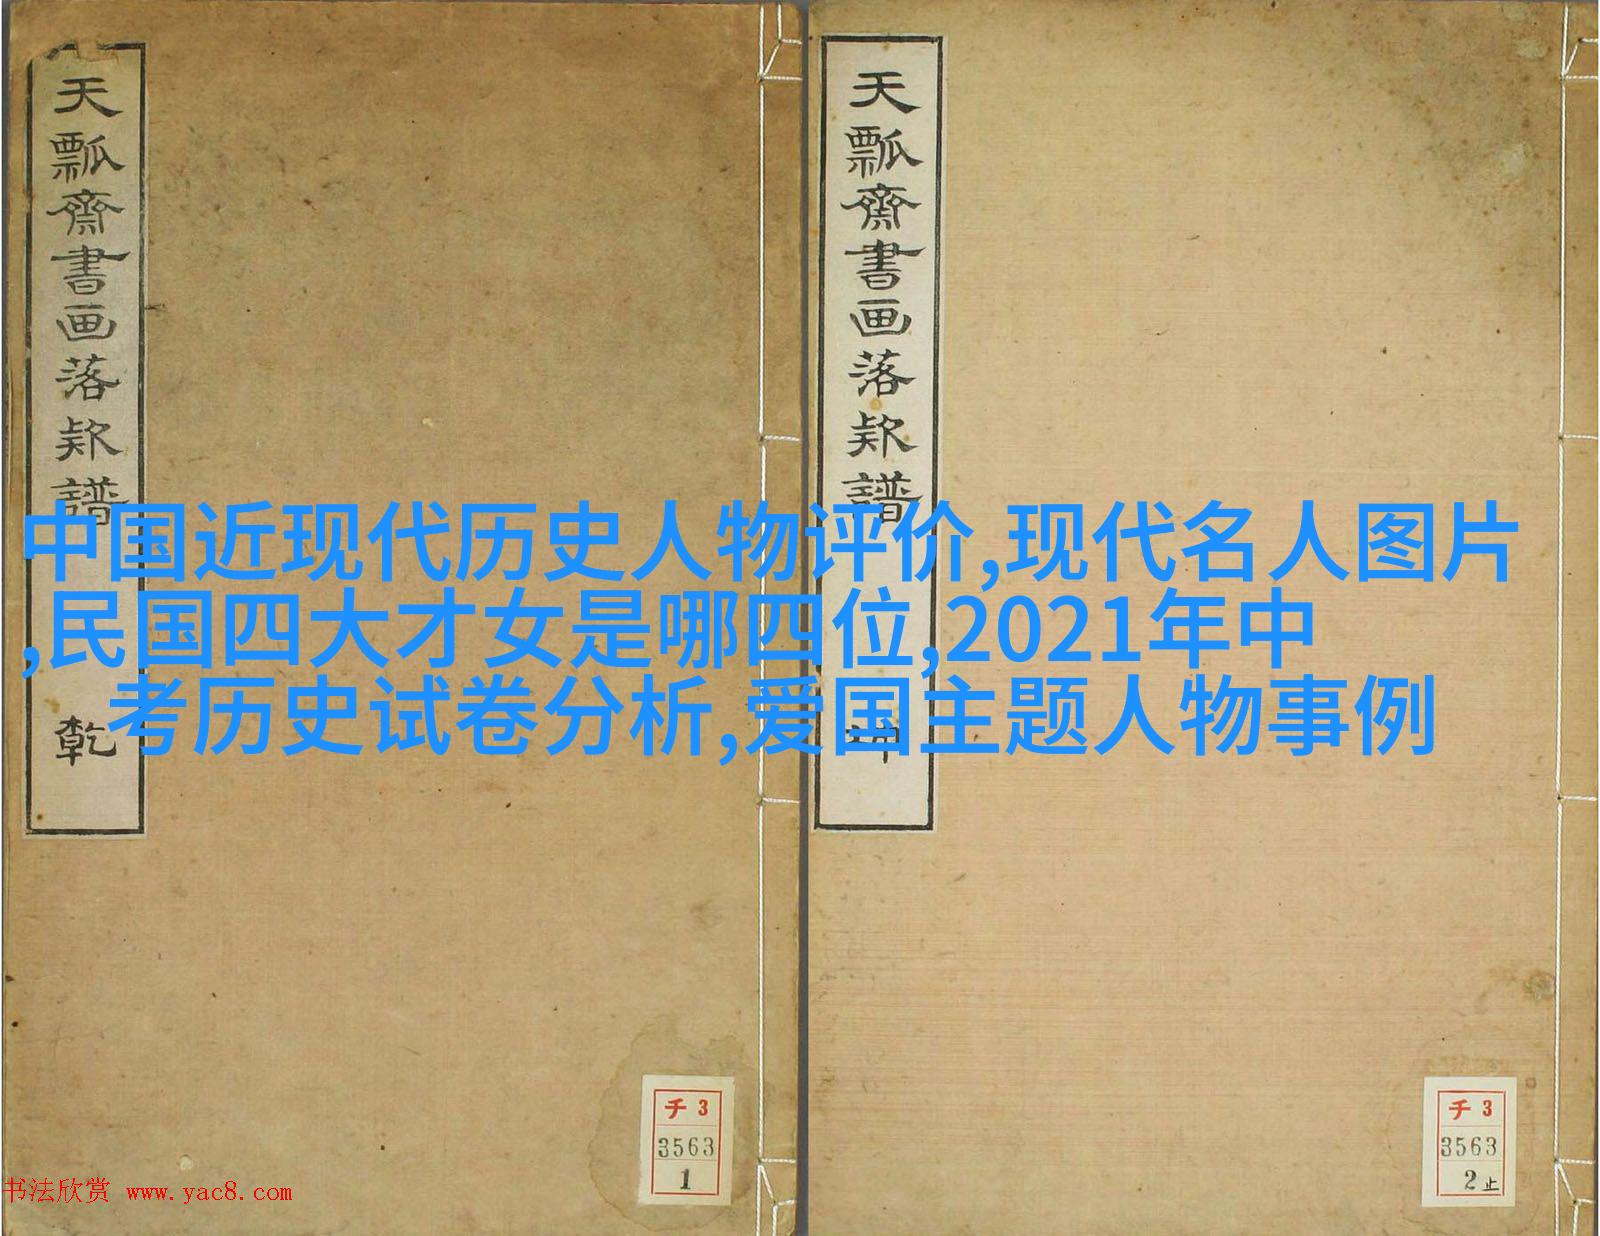 天瓢齋書画落款譜
乾
天瓢齋書画落款譜
中国近现代历史人物评价,现代名人图片
,民国四大才女是哪四位,2021年中
考历史试卷分析,爱国主题人物事例
チ3
3563
1
チ3
3563
2止
书法欣赏 www.yac8.com